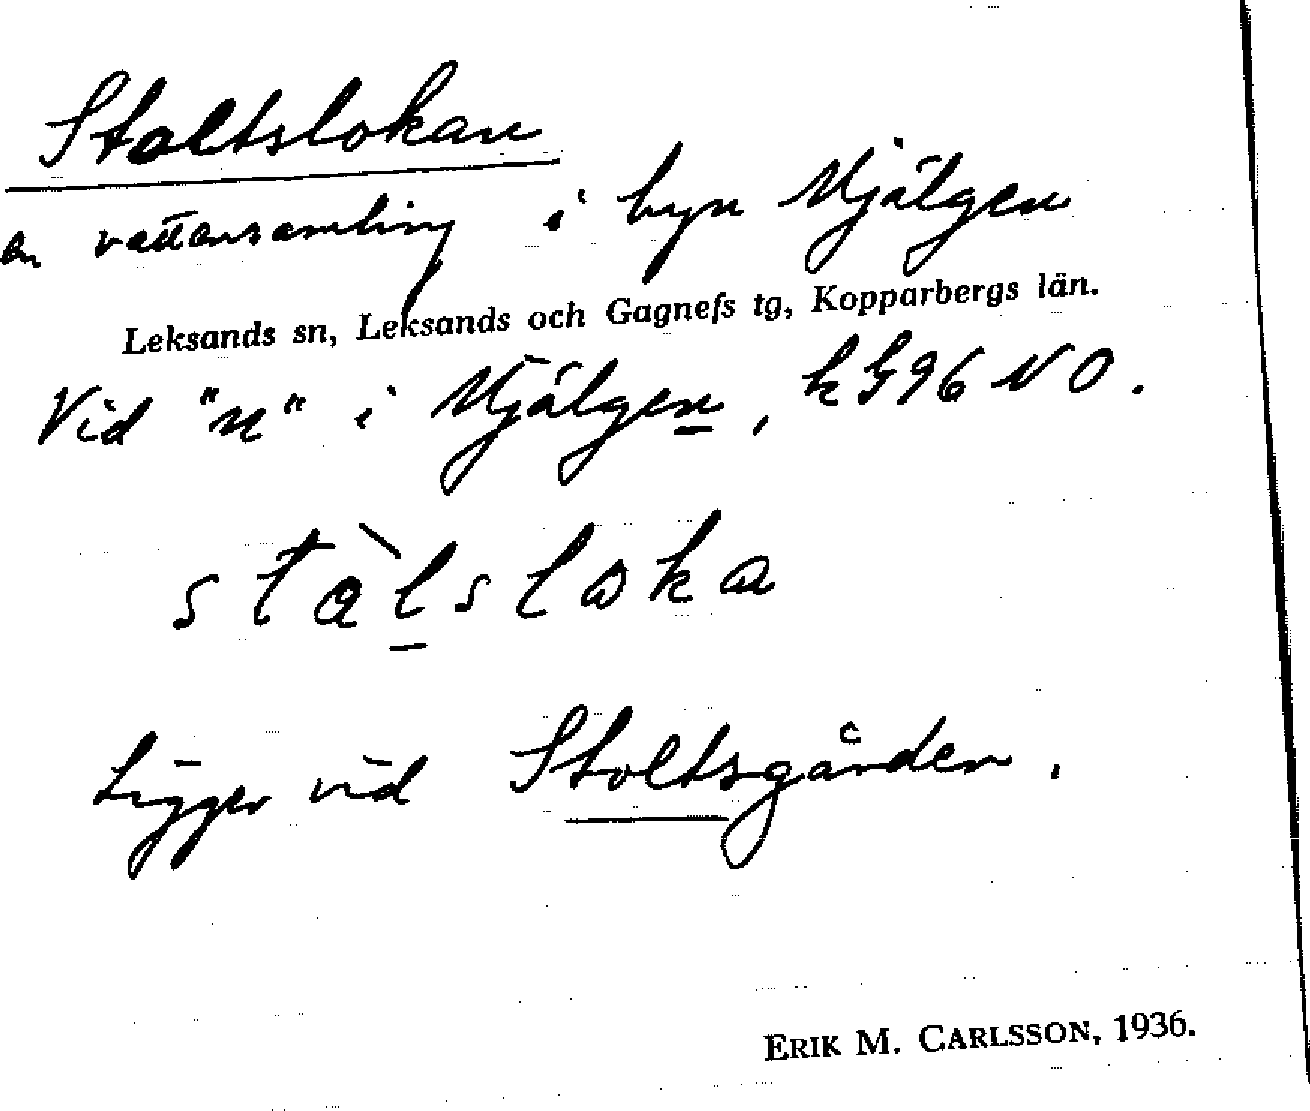 Stoltslokan
en vattensamling i byn Mjälgen
Leksands sn, Leksands och Gagnefs tg, Kopparbergs län.
Vid "n" i Mjälgen, k G96 NO.
ståls
Ligger vid Stoltsgården.
ERIK M. CARLSSON, 1936.